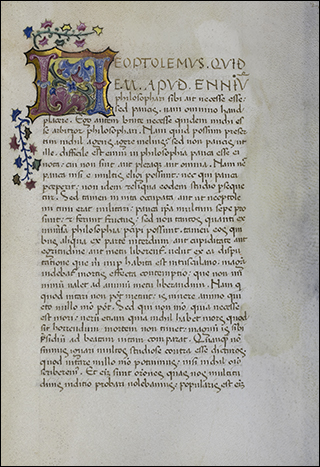 NEOPTOLEMUS. QUID
EM. APUD. ENNIŪ
philosophari sibi ait necesse esse:
sed paucis, nam omnino haud
placere. Ego autem brute necesse quidem mihi es
se arbitror philosophari. Nam quid possum preser
tim nihil agens, agere melius: sed non paucis, ut
ille. difficile est enim in philosophia pauca esse ei
nota: cui non sint aut pleraque aut omnia. Nam nec
pauca nisi e multis eligi possunt: nec qui pauca
perceperit: non idem reliqua eodem studio perseque
tur. Sed tamen in vita occupata, atque ut neoptole
mi tum erat militari: pauca ipsa multum sepe pro
sunt: et ferunt fructus, sed non tantos, quanti ex
universa philosophia percipi possunt: tamen eos qui
bus aliqua ex parte interdum aut cupiditate aut
egritudine aut metu liberemur. velut ex ea dispu
tatione que habita est in tusculano: magna
videbatur mortis effecta contemptio: que non mi
nimū valet ad animū metu liberandum. Nam q
quod vitari non pōt metuit: is vivere animo qui
eto nullo mō pōt. Sed qui non mō, quia necesse
est mori: verū etiam quia nihil habet mors, quod
sit horrendum: mortem non timet: magnū is sibi
presidiū ad beatam vitam comparat. Quanquā nō
sumus ignari multos studiose contra esse dicturos:
quod vitare nullo mō potuimus, nisi nihil oīno
scriberemus. Et si orōnes quas nos multitu
dinis iuditio probari volebamus: popularis est